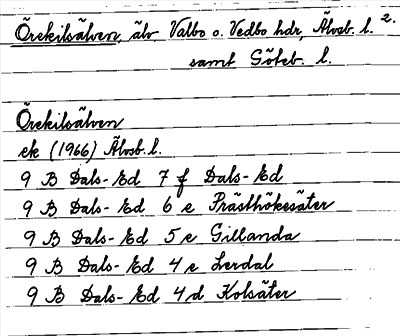 Örekilsälven, älv Valbo o. Vedbo hdr, Älvsb. l. 2.
samt Göteb. l.
Örekilsälven
ek (1966) Älvsb. l.
9 B Dals-Ed 7 f Dals-Ed
9 B Dals-Ed 6 e Prästhökesäter
9 B Dals-Ed 5 e Gillanda
9 B Dals-Ed 4 e Lerdal
9 B Dals-Ed 4 d Kolsäter